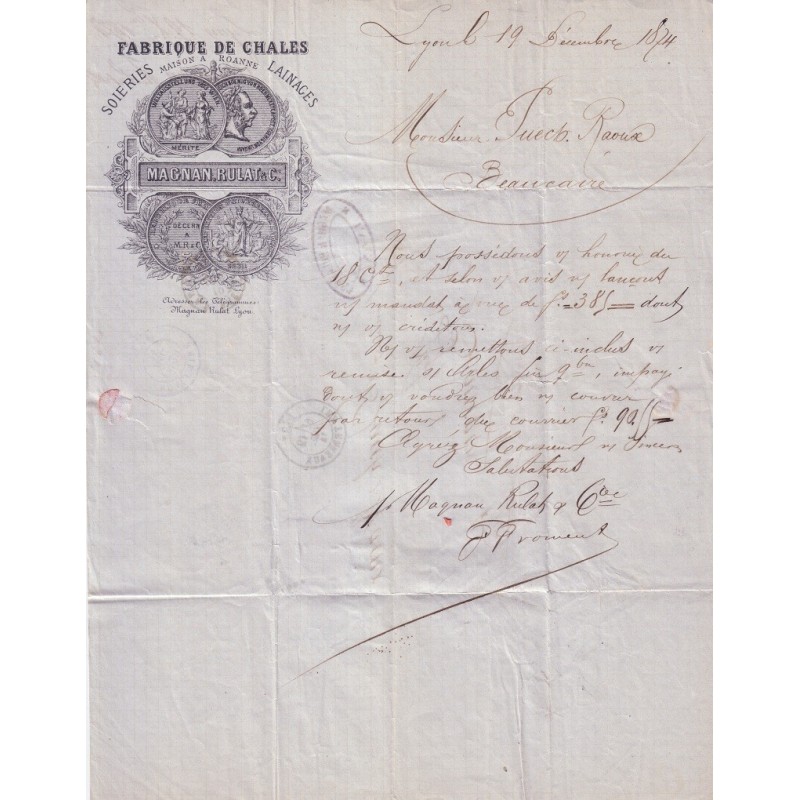 FABRIQUE DE CHALES
SOIERIES MAISON A ROANNE LAINAGES
MÉRITE
MAGNAN, RULAT & C.
DÉCERNÉ
A
M.R & C.
Adresser les Télégrammes:
Magnan Rulat Lyon.
Lyon le 19 Décembre 1874
Monsieur Puech Raoux
Beaucaire
Nous possédons v/ honorée du
18 Ct, et selon v/ avis n/ lançons
n/ mandat à vue de f. 385 = dont
n/ v/ créditons.
Ns v/ remettons ci-inclus v/
remise s/ Arles fin 9bre, impayé
dont v/ voudrez bien n/ couvrir
par retour du courrier f.
Agréez Monsieur n/ sincères
Salutations
p/ Magnan Rulat & Cie
Froment